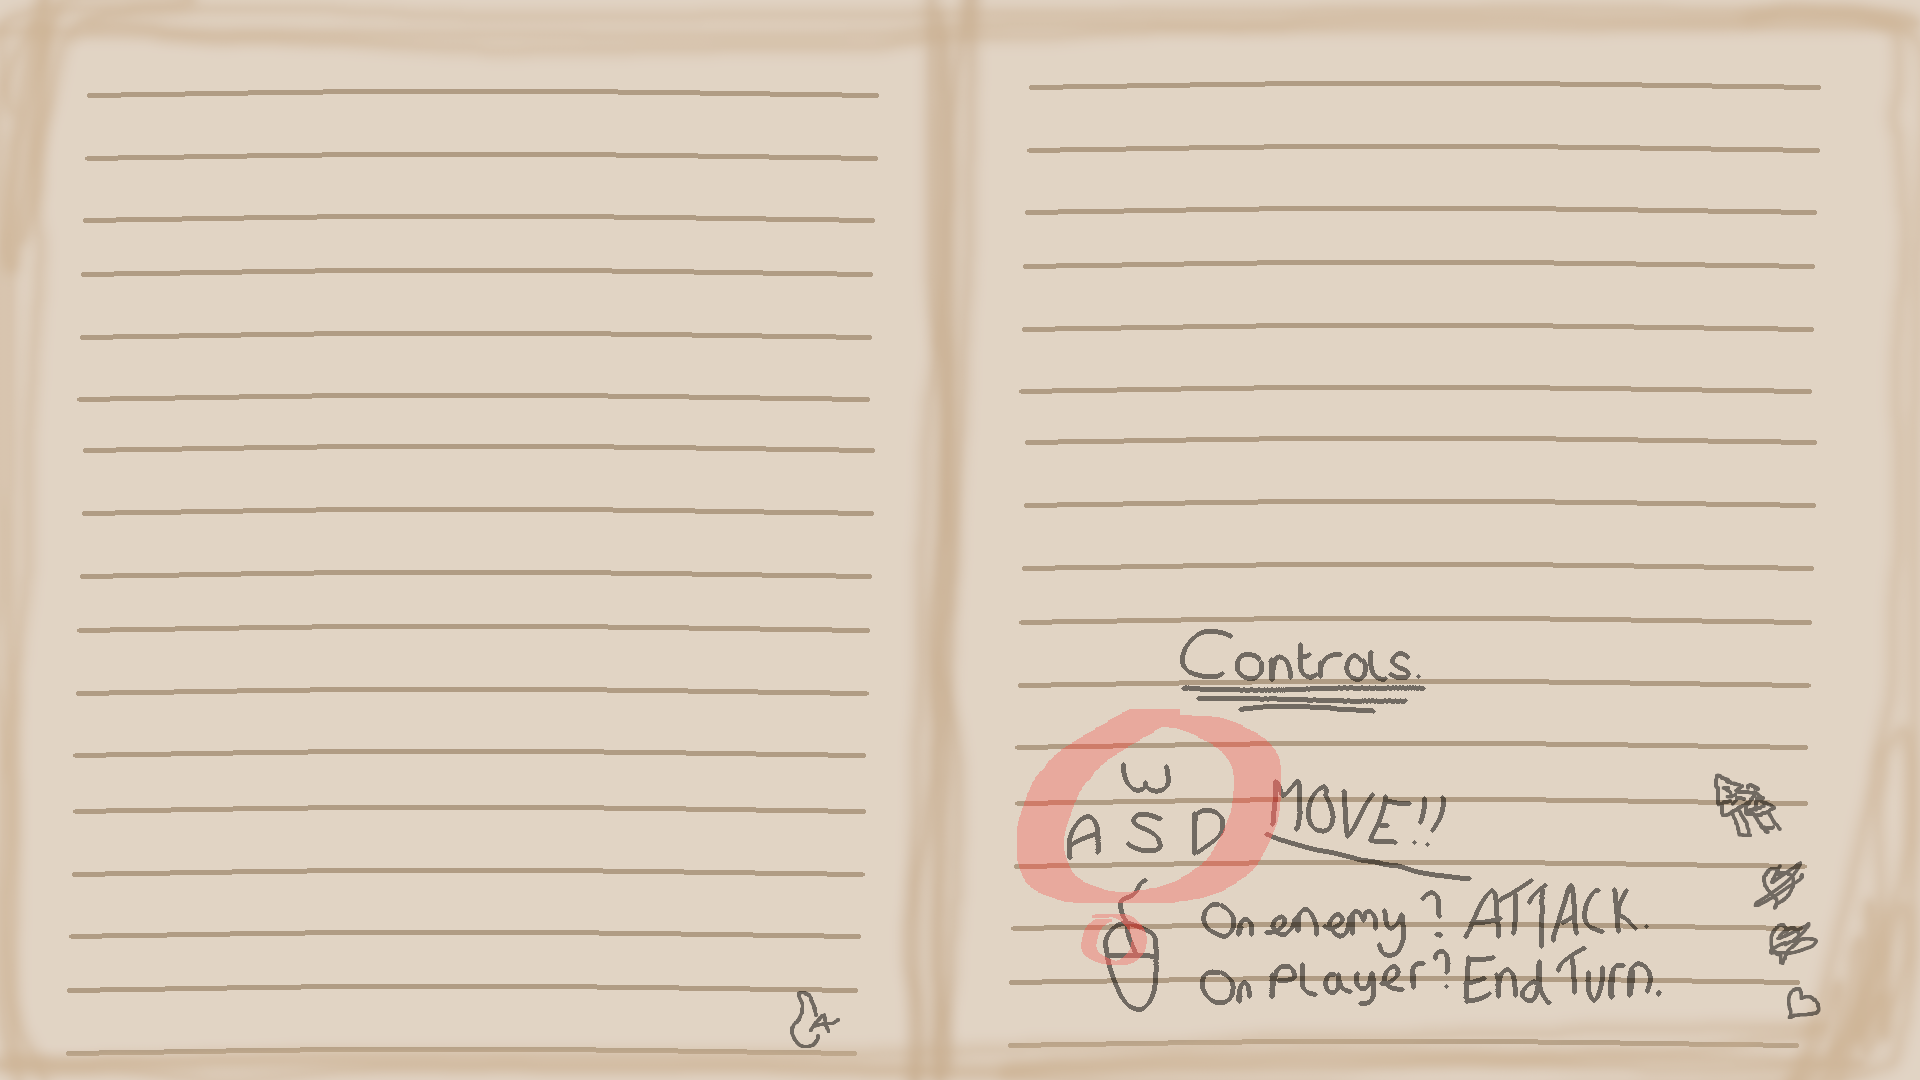 Controls.
W
A S D MOVE!!
On enemy? ATTACK.
On Player? End Turn.